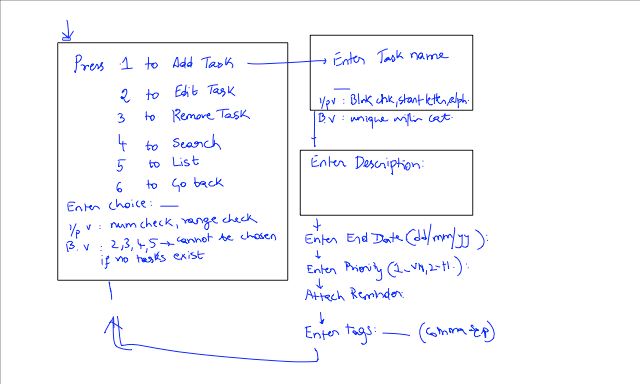 Press 1 to Add Task
2 to Edit Task
3 to Remove Task
4 to Search
5 to List
6 to Go back
Enter choice: __
I/p v : num check, range check
B. v : 2,3,4,5 → cannot be chosen
if no tasks exist
Enter Task name
I/p v : Blnk chk, start letter, alph.
B. v : unique within cat.
Enter Description:
Enter End Date (dd/mm/yy):
Enter Priority (1-VH, 2-H.):
Attach Reminder:
Enter tags: ____ (comma sep)